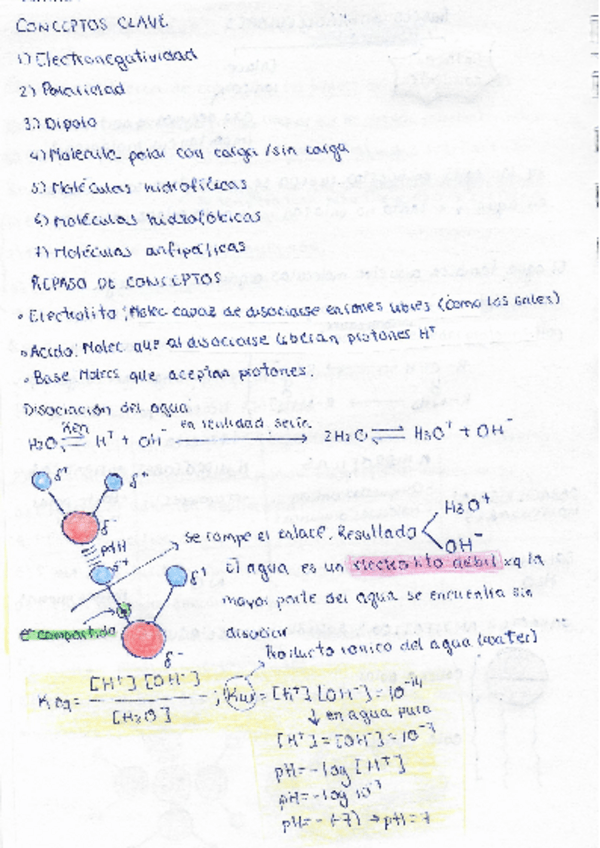 CONCEPTOS CLAVE
1) Electronegatividad
2) Polaridad
3) Dipolo
4) Molécula polar con carga / sin carga
5) Moléculas hidrofílicas
6) Moléculas hidrofóbicas
7) Moléculas anfipáticas
REPASO DE CONCEPTOS
• Electrolito: Molec capaz de disociarse en iones libres (como las sales)
• Ácido: Molec que al disociarse liberan protones H⁺
• Base Molecs que aceptan protones.
Disociación del agua
H₂O ⇌ H⁺ + OH⁻ en realidad sería → 2H₂O ⇌ H₃O⁺ + OH⁻
Keq
δ⁺ δ⁺
δ⁻
pdH
δ⁺ δ⁺
se rompe el enlace. Resultado H₃O⁺
OH⁻
El agua es un electrolito débil xq la
mayor parte del agua se encuentra sin
disociar
e⁻ compartido
δ⁻
Producto iónico del agua (water)
Keq = [H⁺][OH⁻] / [H₂O] ; Kw = [H⁺][OH⁻] = 10⁻¹⁴
↓ en agua pura
[H⁺] = [OH⁻] = 10⁻⁷
pH = -log [H⁺]
pH = -log 10⁻⁷
pH = -(-7) → pH = 7